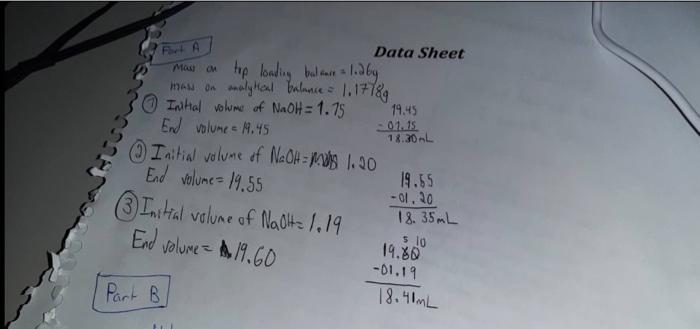 Data Sheet
Part A
Mass on top loading balance = 1.26g
mass on analytical balance = 1.1778g
① Initial volume of NaOH = 1.15
End volume = 19.45
19.45
- 01.15
18.30mL
② Initial volume of NaOH = 1.20
End volume = 19.55
19.55
- 01.20
18.35mL
③ Initial volume of NaOH = 1.19
End volume = 19.60
5 10
19.60
- 01.19
18.41mL
Part B